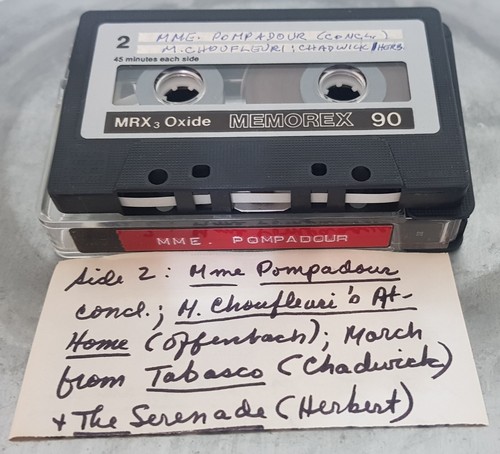 2
MME. POMPADOUR (CONCL.)
M. CHOUFLEURI; CHADWICK/HERB
45 minutes each side
MRX3 Oxide MEMOREX 90
MME. POMPADOUR
Side 2: Mme Pompadour
concl.; M. Choufleuri's At-
Home (Offenbach); March
from Tabasco (Chadwick)
+ The Serenade (Herbert)